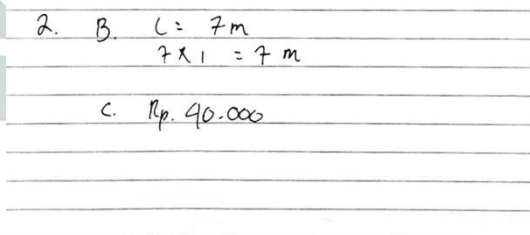 2. B. L = 7 m
7 x 1 = 7 m
C. Rp. 40.000